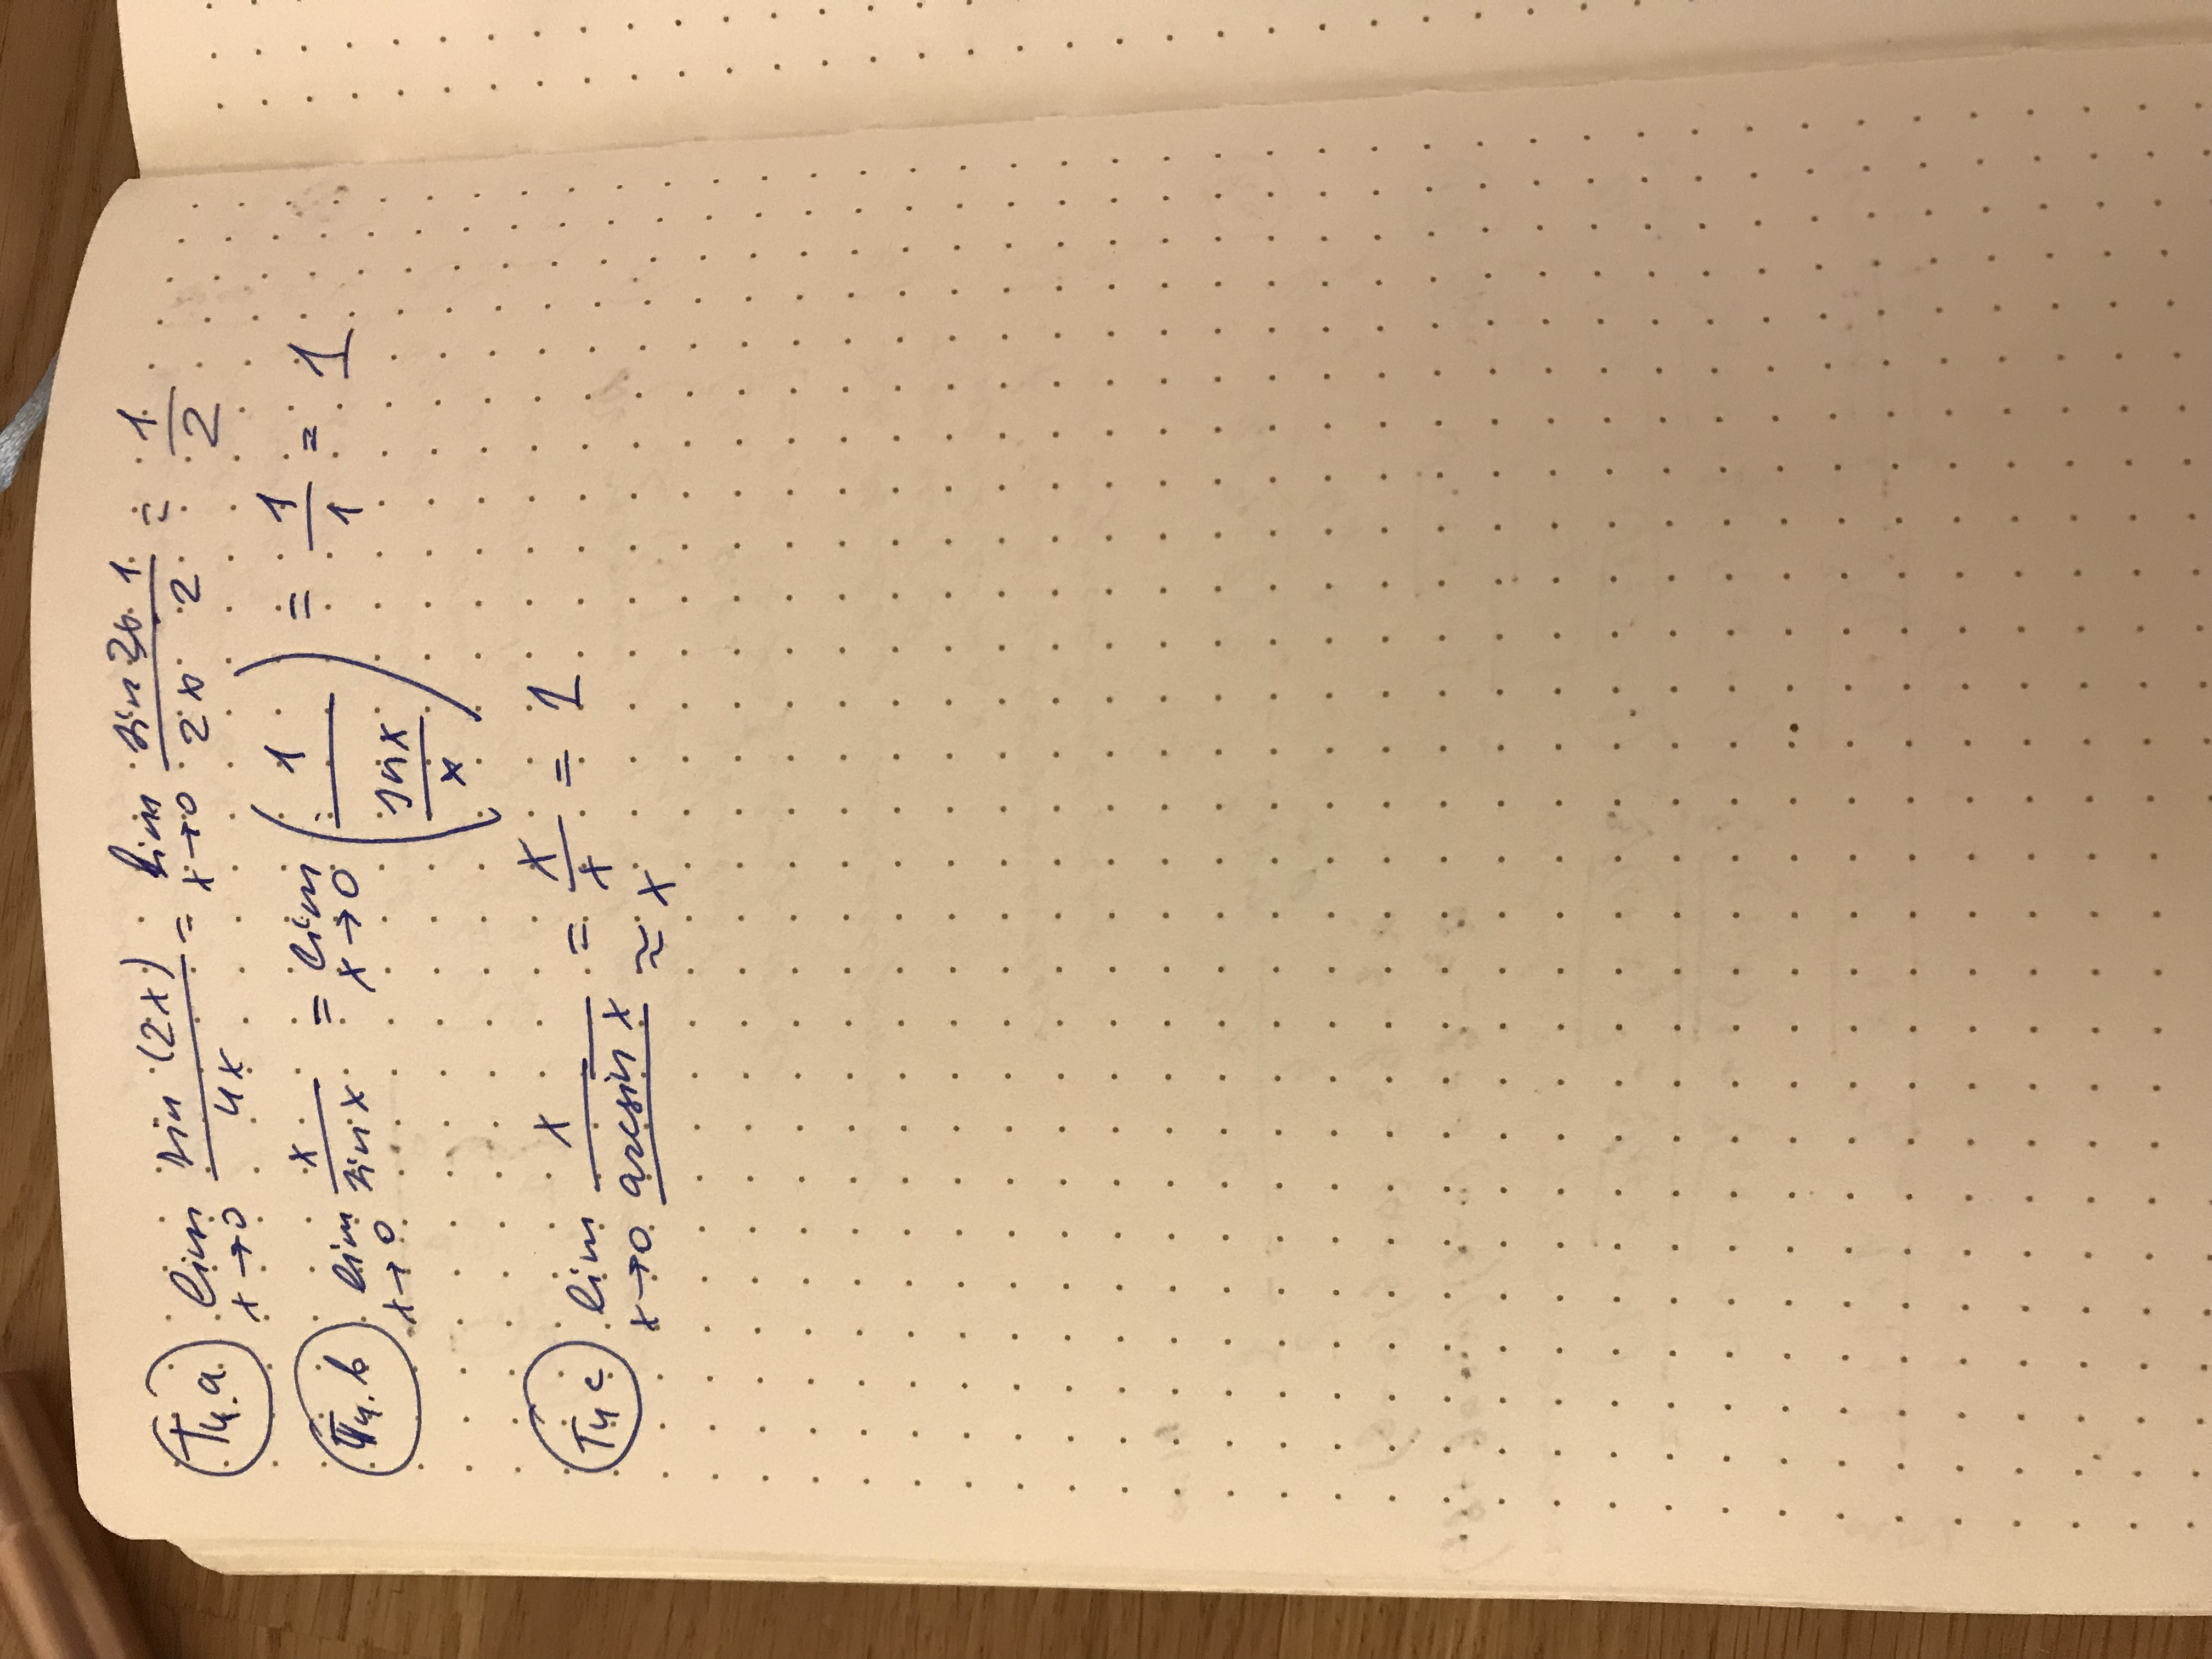 T4.a. lim x→0 sin (2x) / 4x = lim x→0 sin 2x · 1 / 2x · 2 = 1/2
T4.b lim x→0 x / sin x = lim x→0 ( 1 / (sin x / x) ) = 1/1 = 1
T4 c lim x→0 x / arcsin x = x/x = 1
≈ x